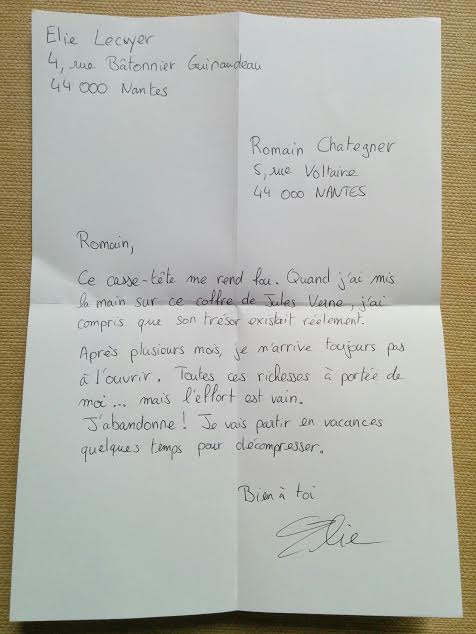 Elie Lecuyer
4, rue Bâtonnier Guinaudeau
44 000 Nantes
Romain Chategner
5, rue Voltaire
44 000 NANTES
Romain,
Ce casse-tête me rend fou. Quand j'ai mis
la main sur ce coffre de Jules Verne, j'ai
compris que son trésor existait réelement.
Après plusieurs mois, je n'arrive toujours pas
à l'ouvrir. Toutes ces richesses à portée de
moi... mais l'effort est vain.
J'abandonne ! Je vais partir en vacances
quelques temps pour décompresser.
Bien à toi
Elie